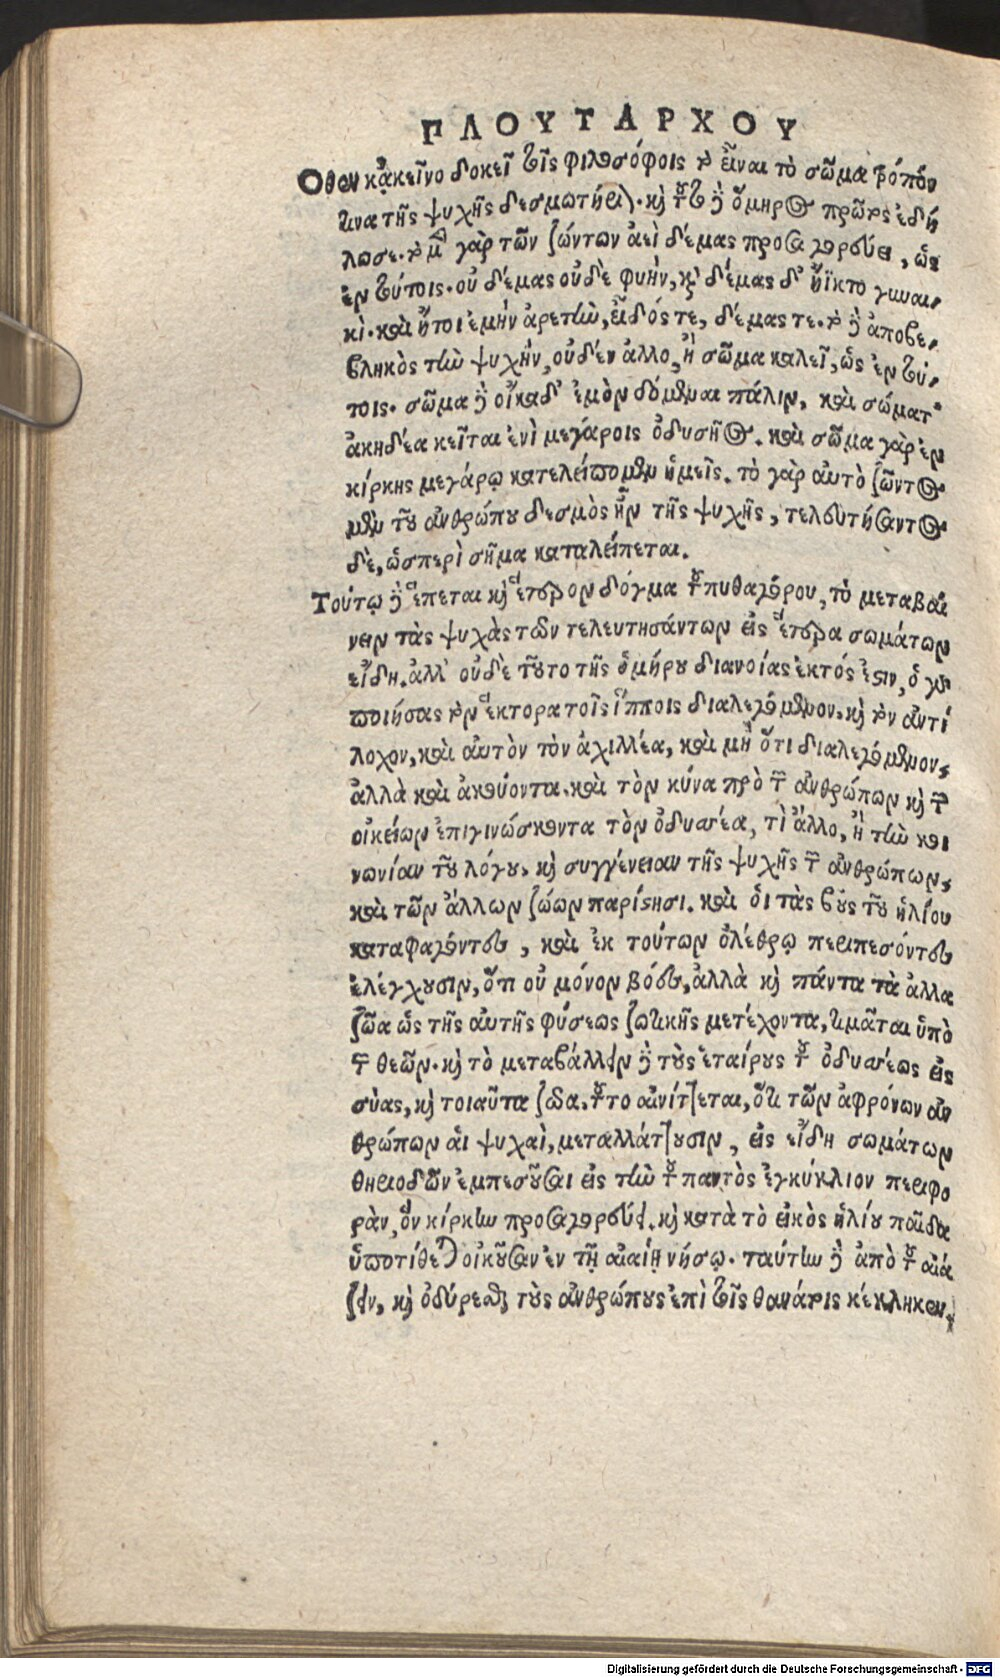 ΠΛΟΥΤΑΡΧΟΥ
Ὅθεν κἀκεῖνο δοκεῖ τοῖς φιλοσόφοις τὸ εἶναι τὸ σῶμα τρόπόν
τινα τῆς ψυχῆς δεσμωτήριον. καὶ τοῦτο δὲ ὅμηρος πρῶτος ἐδή
λωσε. τὸ μὲν γὰρ τῶν ζώντων ἀεὶ δέμας προσαγορεύει, ὡς
ἐν τούτοις. οὐ δέμας οὐδὲ φυήν, καὶ δέμας δ' ἤϊκτο γυναι-
κὶ. καὶ ἤτοι ἐμὴν ἀρετὴν, εἶδός τε, δέμας τε. τὸ δὲ ἀποβε-
βληκὸς τὴν ψυχὴν, οὐδέν ἄλλο, ἢ σῶμα καλεῖ, ὡς ἐν τού-
τοις. σῶμα δὲ οἴκαδ' ἐμὸν δόμεναι πάλιν, καὶ σώματ'
ἀκηδέα κεῖται ἐνὶ μεγάροις ὀδυσῆος. καὶ σῶμα γὰρ ἐν
κίρκης μεγάρῳ κατελείπομεν ἡμεῖς. τὸ γὰρ αὐτὸ ζῶντος
μὲν τοῦ ἀνθρώπου δεσμὸς ἦν τῆς ψυχῆς, τελευτήσαντος
δὲ, ὡσπερὶ σῆμα καταλείπεται.
Τούτῳ δὲ ἕπεται καὶ ἕτερον δόγμα τοῦ πυθαγόρου, τὸ μεταβαί
νειν τὰς ψυχὰς τῶν τελευτησάντων εἰς ἕτερα σωμάτων
εἴδη. ἀλλ' οὐδὲ τοῦτο τῆς ὁμήρου διανοίας ἐκτός ἐστιν, ὁ γὰρ
ποιήσας τὸν ἕκτορα τοῖς ἵπποις διαλεγόμενον. καὶ τὸν ἀντί
λοχον, καὶ αὐτὸν τὸν ἀχιλλέα, καὶ μὴ ὅτι διαλεγόμενον,
ἀλλὰ καὶ ἀκούοντα. καὶ τὸν κύνα πρὸ τῶν ἀνθρώπων καὶ τῶν
οἰκείων ἐπιγινώσκοντα τὸν ὀδυσσέα, τὶ ἄλλο, ἢ τὴν κοι
νωνίαν τοῦ λόγου, καὶ συγγένειαν τῆς ψυχῆς τῶν ἀνθρώπων,
καὶ τῶν ἄλλων ζώων παρίστησι. καὶ ὁι τὰς βοῦς τοῦ ἡλίου
καταφαγόντες, καὶ ἐκ τούτων ὀλέθρῳ περιπεσόντες
ἐλέγχουσιν, ὅτι οὐ μόνον βόες, ἀλλὰ καὶ πάντα τὰ ἄλλα
ζῶα ὡς τῆς αὐτῆς φύσεως ζωτικῆς μετέχοντα, τιμᾶται ὑπὸ
τῶν θεῶν. καὶ τὸ μεταβάλλειν δὲ τοὺς ἑταίρους τοῦ ὀδυσσέως εἰς
σύας, καὶ τοιαῦτα ζῶα. τοῦτο αἰνίττεται, ὅτι τῶν ἀφρόνων ἀν
θρώπων ἁι ψυχαὶ, μεταλλάττουσιν, εἰς εἴδη σωμάτων
θηριοδῶν ἐμπεσοῦσαι εἰς τὴν τοῦ παντὸς ἐγκύκλιον περιφο
ρὰν, ὅν κίρκην προσαγορεύει. καὶ κατὰ τὸ εἰκὸς ἡλίου παῖδα
ὑποτίθεται οἰκοῦσαν ἐν τῇ αἰαίῃ νήσῳ. ταύτην δὲ ἀπὸ τοῦ αἰά
ζειν, καὶ ὀδύρεσθαι τοὺς ἀνθρώπους ἐπὶ τοῖς θανάτοις κέκληκεν.
Digitalisierung gefördert durch die Deutsche Forschungsgemeinschaft - DFG